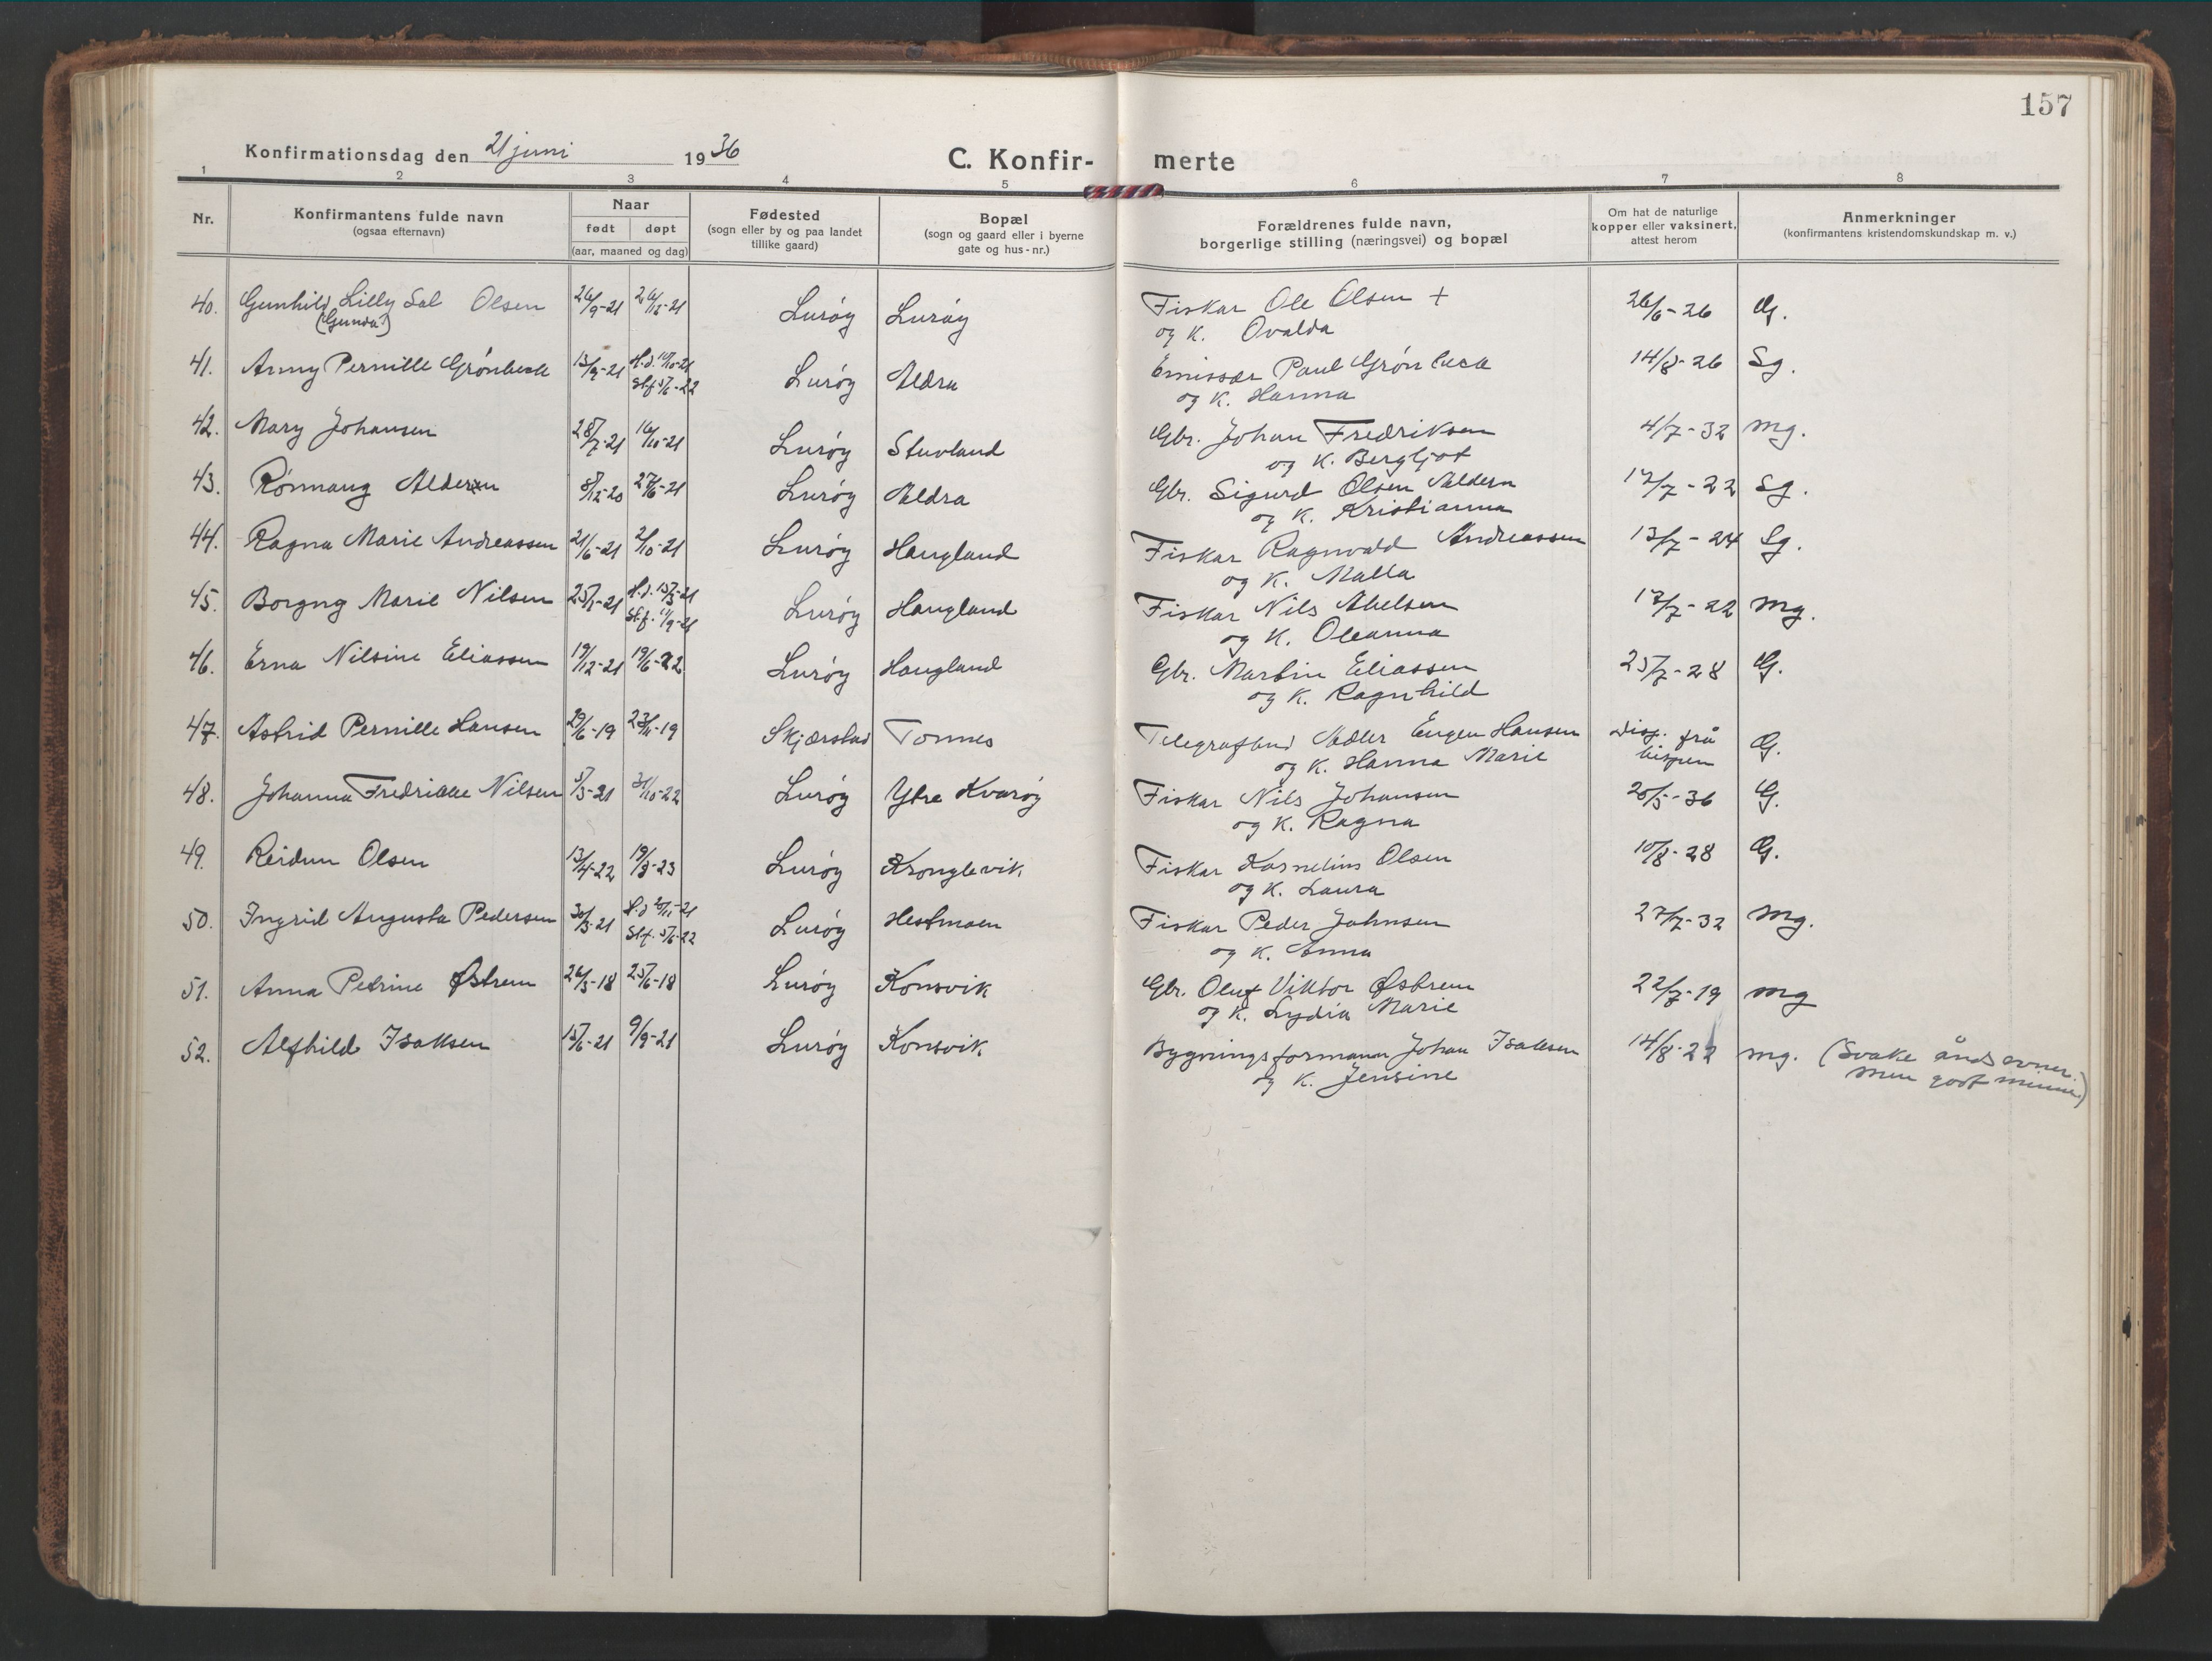 157
Konfirmationsdag den 21 juni 1936
C. Konfir- merte
1 2 3 4 5 6 7 8
Nr.
Konfirmantens fulde navn
(ogsaa efternavn)
Naar
født døpt
(aar, maaned og dag)
Fødested
(sogn eller by og paa landet
tillike gaard)
Bopæl
(sogn og gaard eller i byerne
gate og hus-nr.)
Forældrenes fulde navn,
borgerlige stilling (næringsvei) og bopæl
Om hat de naturlige
kopper eller vaksinert,
attest herom
Anmerkninger
(konfirmantens kristendomskundskap m. v.)
40. Gunhild Lilly Sol Olsen 26/9-21 26/12-21 Lurøy Lurøy Fiskar Ole Olsen + 26/6-26 G.
(Gunda?) og K. Ovalda
41. Anny Pernille Grønbeck 13/9-21 H.d. 16/10-21 Lurøy Aldra Emissær Paul Grønbeck 14/8-26 Sg.
Stf. 5/6-22 og K. Hanna
42. Mary Johansen 28/7-21 16/10-21 Lurøy Stuvland Gbr. Johan Fredriksen 4/7-32 mg.
og K. Bergljot
43. Rønnaug Aldern 8/12-20 27/6-21 Lurøy Aldra Gbr. Sigurd Olsen Aldern 17/7-22 Sg.
og K. Kristianna
44. Ragna Marie Andreassen 21/6-21 2/10-21 Lurøy Haugland Fiskar Ragnvald Andreassen 13/7-24 Sg.
og K. Malla
45. Borgny Marie Nilsen 25/1-21 H.d. 15/3-21 Lurøy Haugland Fiskar Nils Abelsen 17/7-22 mg.
Stf. 11/9-21 og K. Oleanna
46. Erna Nilsine Eliassen 19/12-21 19/6-22 Lurøy Haugland Gbr. Martin Eliassen 25/7-28 G.
og K. Ragnhild
47. Astrid Pernille Hansen 29/6-19 23/11-19 Skjærstad Tonnes Telegrafbud Adler Eugen Hansen Disp. frå G.
og K. Hanna Marie bispen
48. Johanna Fredrikke Nilsen 5/3-21 31/10-22 Lurøy Ytre Kvarøy Fiskar Nils Johansen 20/5-36 G.
og K. Ragna
49. Reidun Olsen 13/4-22 19/8-23 Lurøy Kronglevik Fiskar Kornelius Olsen 10/8-28 G.
og K. Laura
50. Ingrid Augusta Pedersen 30/3-21 H.d 20/11-21 Lurøy Hestmoen Fiskar Peder Johnsen 27/7-32 mg.
Stf. 5/6-22 og K. Anna
51. Anna Petrine Østrem 26/3-18 25/6-18 Lurøy Konsvik Gbr. Oluf Viktor Østrem 22/7-19 mg
og K. Lydia Marie
52. Alfhild Isaksen 15/6-21 9/9-21 Lurøy Konsvik Bygningsformann Johan Isaksen 14/8-22 mg. (Svake åndsevner.
og K. Jensine men godt minne)